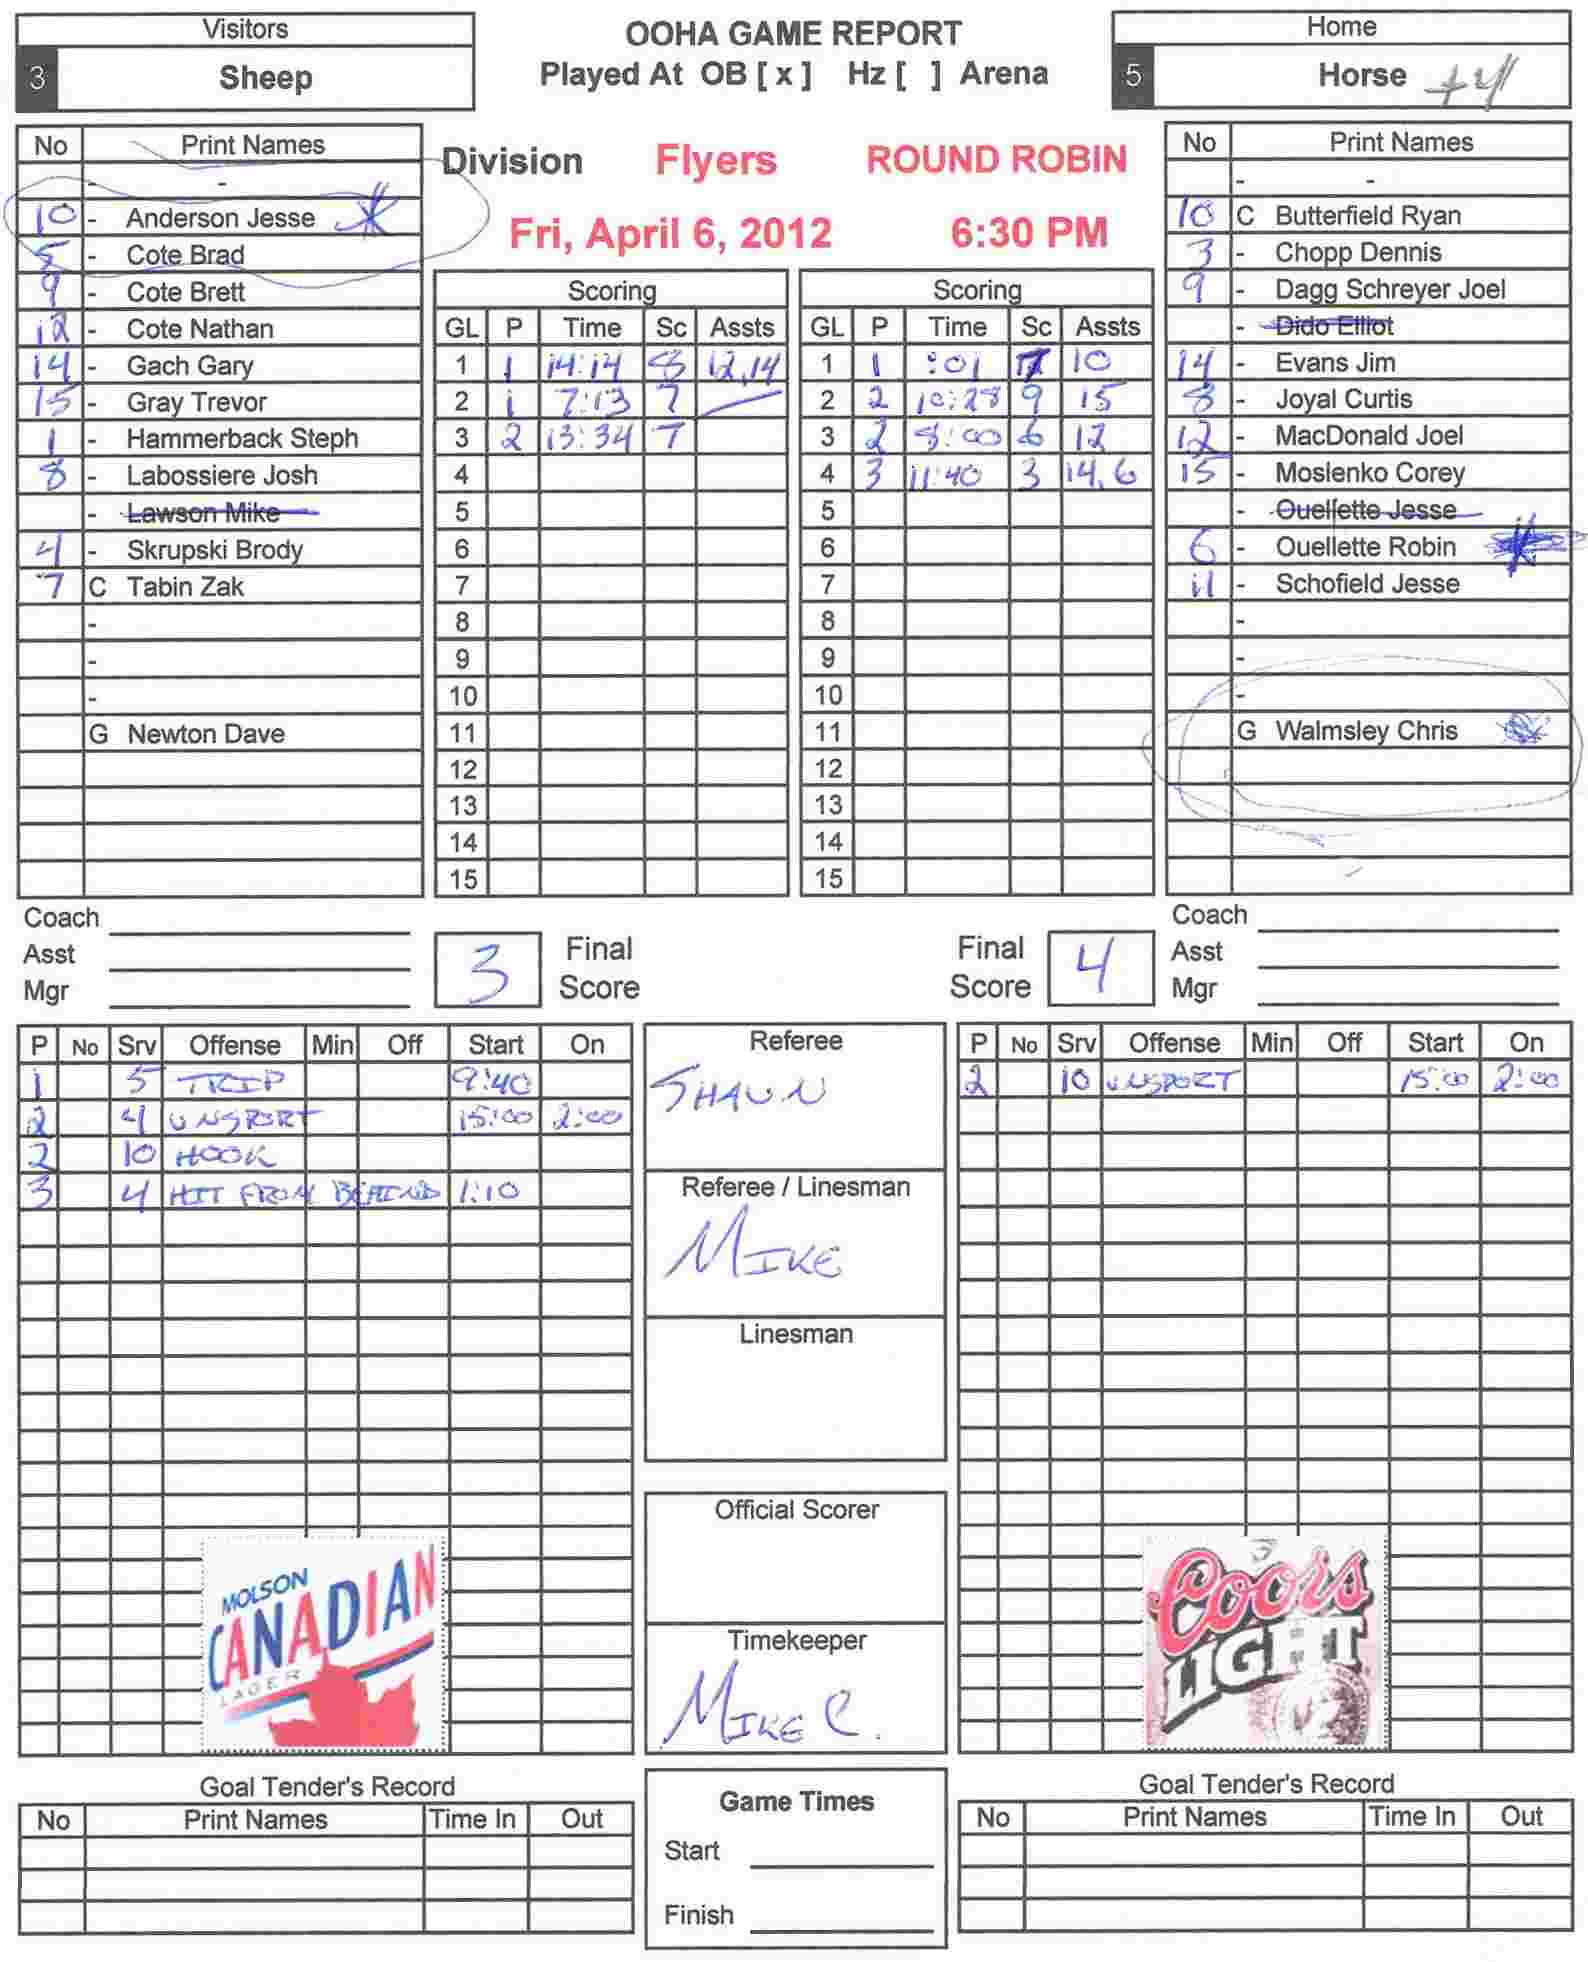 Visitors
3 Sheep
OOHA GAME REPORT
Played At OB [ x ] Hz [ ] Arena
Home
5 Horse +4
No Print Names
- -
10 - Anderson Jesse
5 - Cote Brad
9 - Cote Brett
12 - Cote Nathan
14 - Gach Gary
15 - Gray Trevor
1 - Hammerback Steph
8 - Labossiere Josh
- Lawson Mike
4 - Skrupski Brody
7 C Tabin Zak
-
-
-
G Newton Dave
Division Flyers ROUND ROBIN
Fri, April 6, 2012 6:30 PM
Scoring
GL P Time Sc Assts
1 1 14:14 8 12,14
2 1 7:13 7
3 2 13:34 7
4
5
6
7
8
9
10
11
12
13
14
15
Scoring
GL P Time Sc Assts
1 1 :01 10
2 2 10:28 9 15
3 2 8:00 6 12
4 3 11:40 3 14,6
5
6
7
8
9
10
11
12
13
14
15
No Print Names
- -
10 C Butterfield Ryan
3 - Chopp Dennis
9 - Dagg Schreyer Joel
- Dido Elliot
14 - Evans Jim
8 - Joyal Curtis
12 - MacDonald Joel
15 - Moslenko Corey
- Ouellette Jesse
6 - Ouellette Robin
11 - Schofield Jesse
-
-
-
G Walmsley Chris
Coach
Asst
Mgr
3 Final Score
Final Score 4
Coach
Asst
Mgr
P No Srv Offense Min Off Start On
1 5 TRIP 9:40
2 4 UNSPORT 15:00 2:00
2 10 HOOK
3 4 HIT FROM BEHIND 1:10
MOLSON
CANADIAN
LAGER
Referee
SHAUN
Referee / Linesman
MIKE
Linesman
Official Scorer
Timekeeper
MIKE C.
P No Srv Offense Min Off Start On
2 10 UNSPORT 15:00 2:00
Coors
LIGHT
Goal Tender's Record
No Print Names Time In Out
Game Times
Start
Finish
Goal Tender's Record
No Print Names Time In Out